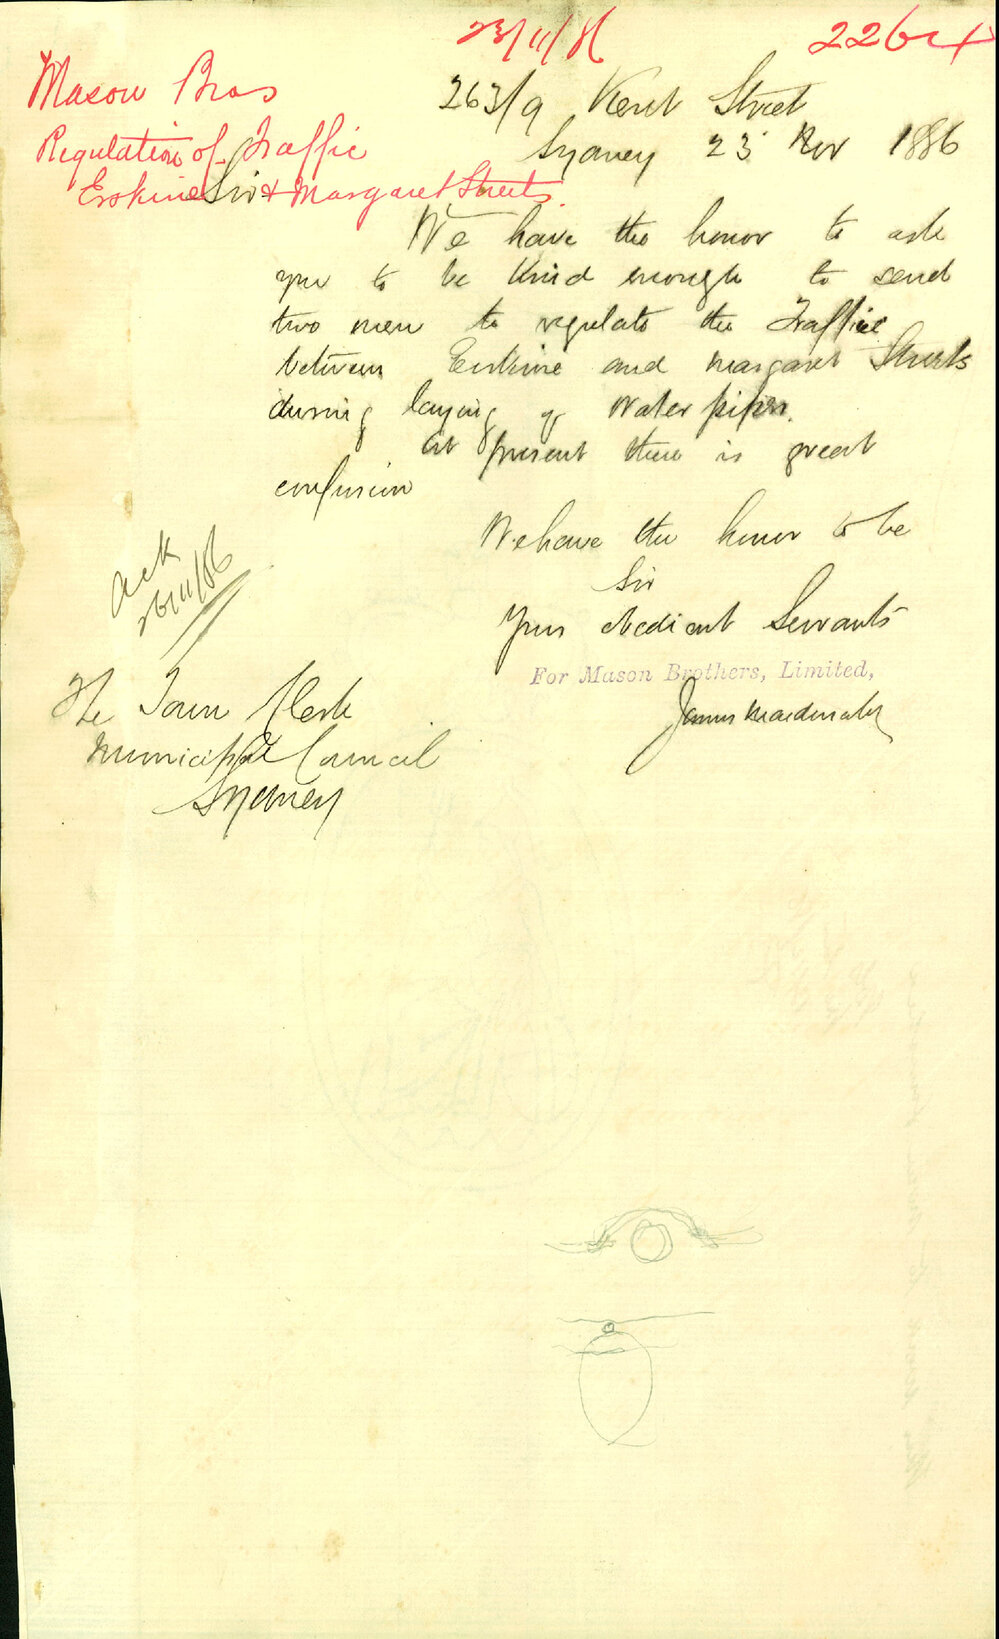 23/11/86
2264
Mason Bros
Regulation of Traffic
Erskine & Margaret Streets.
263/9 Kent Street
Sydney 23 Nov 1886
Sir
We have the honor to ask
you to be kind enough to send
two men to regulate the Traffic
between Erskine and Margaret Streets
during laying of Water pipes.
At present there is great
confusion
We have the honor to be
Sir
Your obedient Servants
For Mason Brothers, Limited,
James
Ack
26/11/86
The Town Clerk
Municipal Council
Sydney